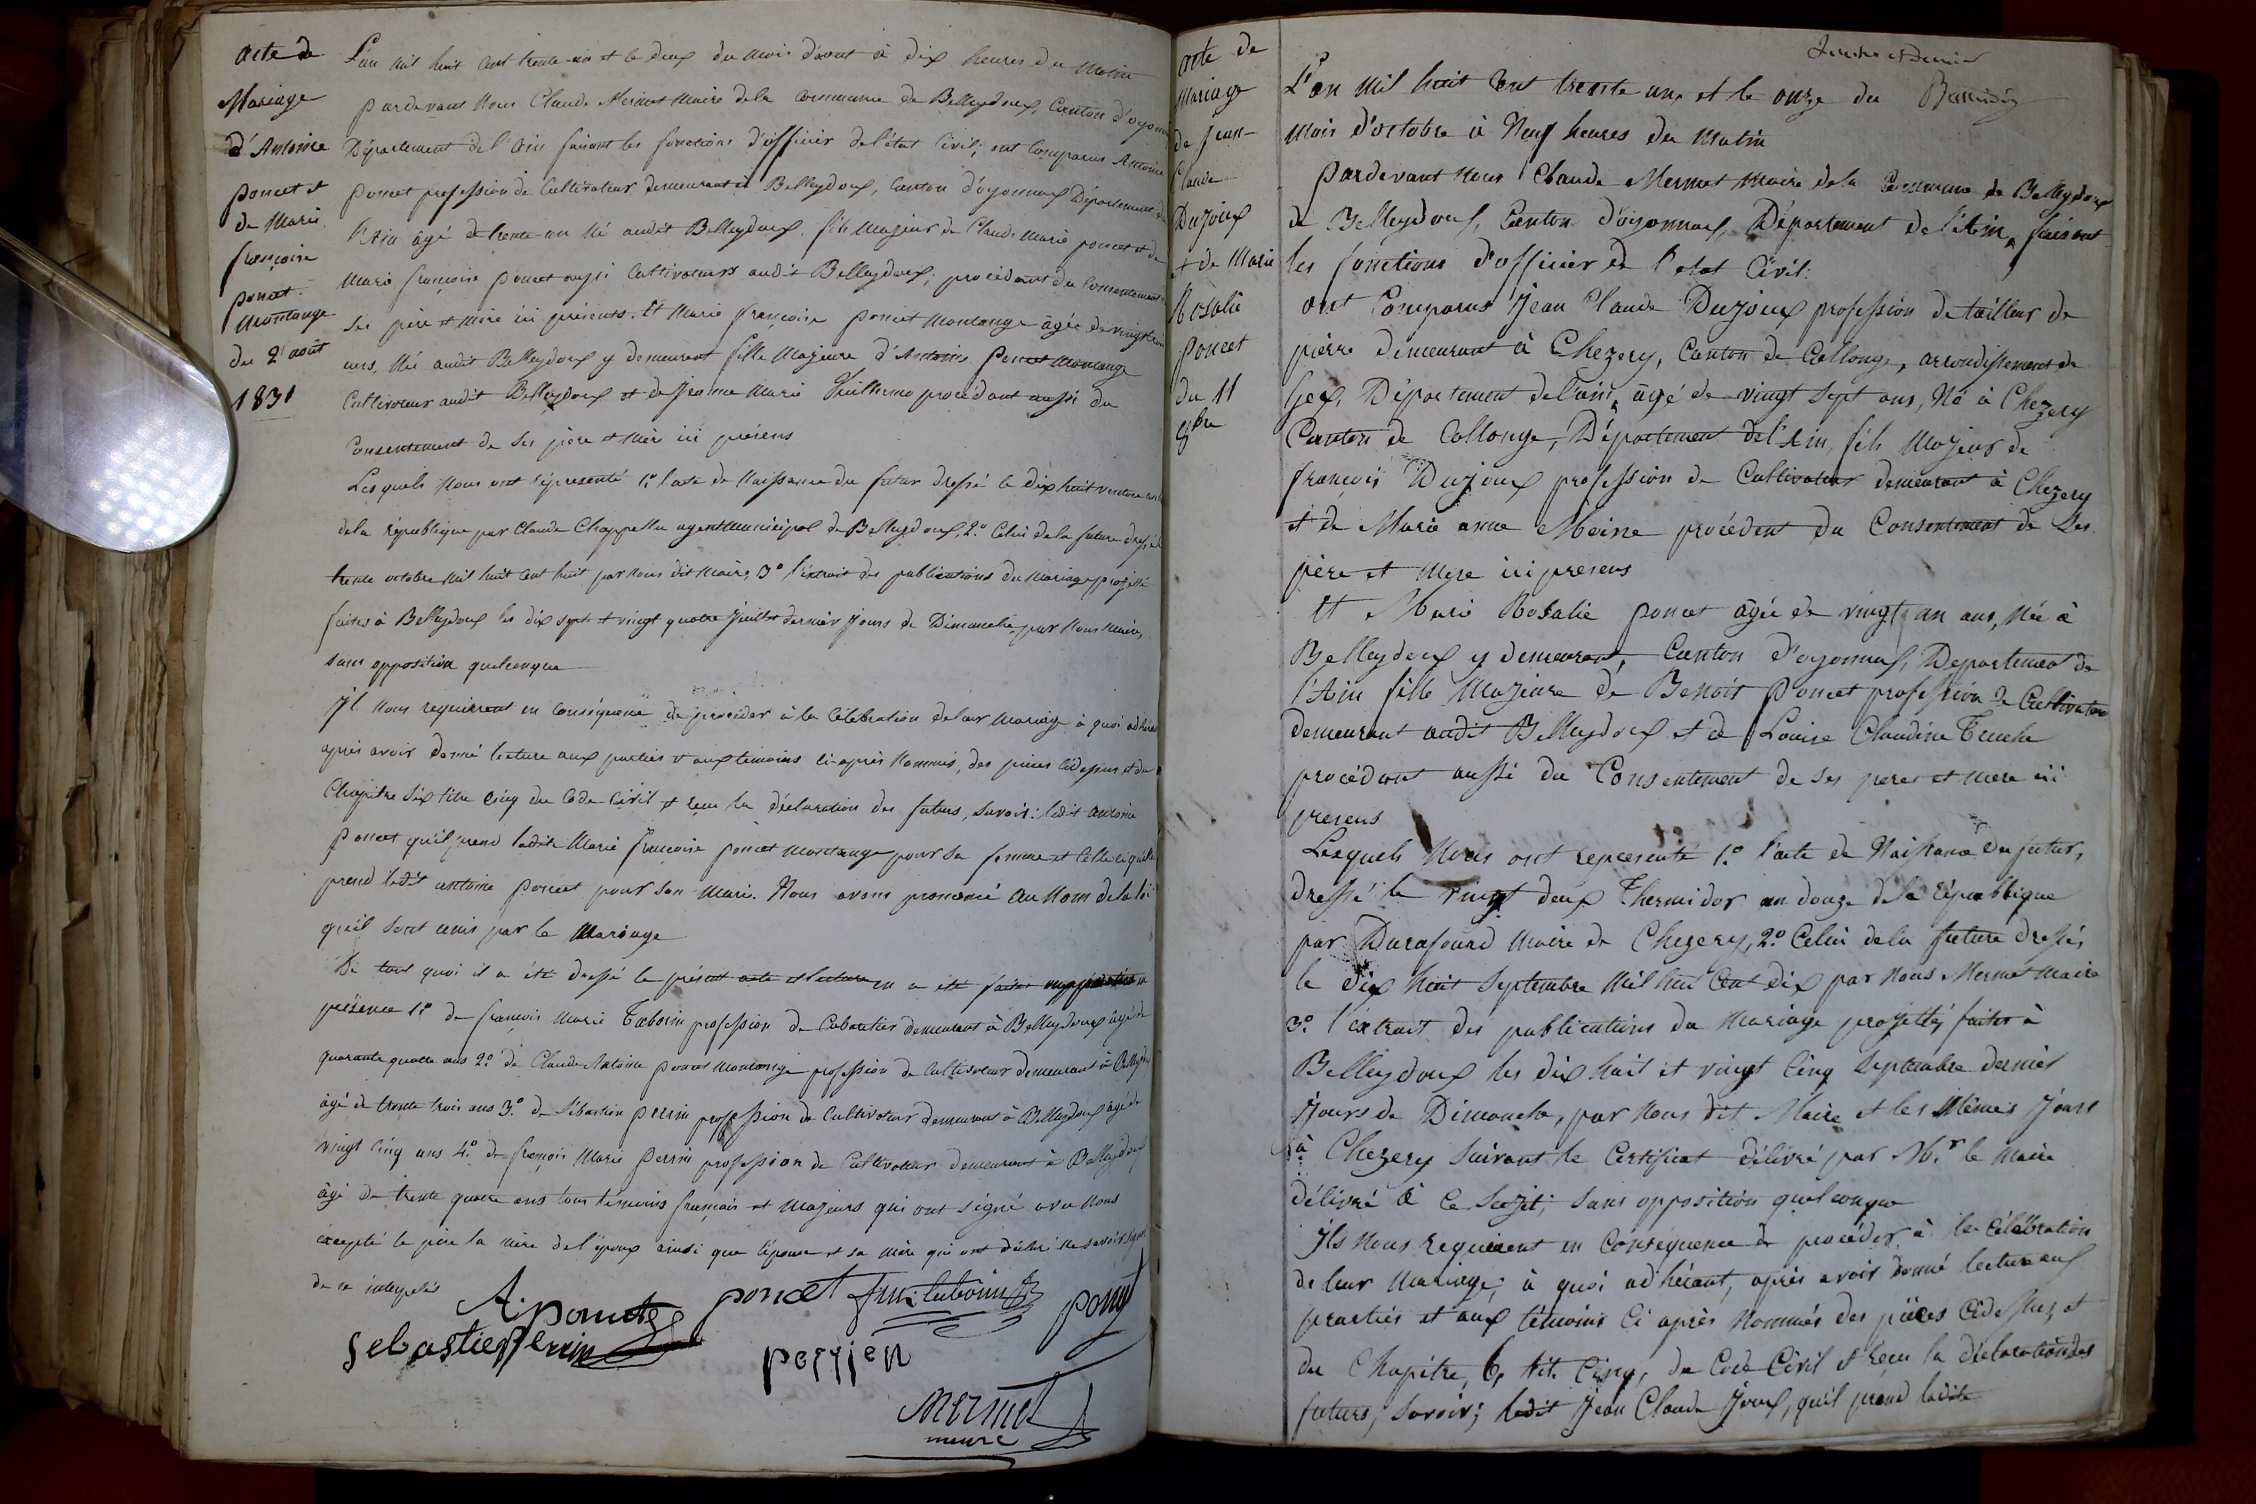 acte de
Mariage
d'Antoine
poncet et
de Marie
françoise
poncet-
Montange
du 2 août
1831
L'an mil huit cent trente-un et le deux du mois d'aout à dix heures du Matin
pardevant Nous Claude Mermet Maire de la commune de Belleydoux, Canton d'oyonnax
Département de l'Ain faisant les fonctions d'officier de l'état Civil; ont Comparus Antoine
poncet profession de Cultivateur demeurant à Belleydoux, Canton d'oyonnax Département de
l'Ain âgé de trente-un Né audit Belleydoux, fils Majeur de Claude Marie poncet et de
Marie françoise poncet aussi Cultivateurs audit Belleydoux; procédant du Consentement
ses père et mère ici présents. Et Marie françoise poncet Montange âgée de vingt trois
ans, Née audit Belleydoux y demeurant fille Majeure d'Antoine poncet Montange
Cultivateur audit Belleydoux et de Jeanne Marie Huillermo procédant aussi du
Consentement de ses père et mère ici présens
Lesquels Nous ont représenté 1.º l'acte de Naissance du futur dressé le dix huit ventose
de la république par Claude Chappellu agent Municipal de Belleydoux, 2.º Celui de la future dressé le
trente octobre mil huit cent huit par Nous dit Maire, 3.º l'extrait des publications du Mariage projetté
faites à Belleydoux les dix sept et vingt quatre Juillet dernier Jours de Dimanche par Nous Maire,
sans opposition quelconque
Il Nous requierent en Conséquence de procéder à la Célébration de leur Mariage à quoi adhérant
après avoir donné lecture aux parties et aux témoins ci-après Nommés, des pièces cidessus et du
Chapitre Six titre Cinq du Code Civil et reçu la déclaration des futurs, savoir: ledit antoine
poncet qu'il prend ladite Marie françoise poncet Montange pour sa femme et Celle ci qu'elle
prend ledit antoine poncet pour son Mari. Nous avons prononcé au Nom de la loi
qu'il sont unis par le Mariage
De tout quoi il a été dressé le présent acte et lecture en a été faite en
présence 1.º de françois Marie Taborin profession de Cabaretier demeurant à Belleydoux âgé de
quarante quatre ans 2.º de Claude Antoine poncet Montange profession de Cultivateur demeurant à Belleydoux
âgé de trente trois ans 3.º de Sébastien perrin profession de Cultivateur demeurant à Belleydoux âgé de
vingt Cinq ans 4.º de françois Marie perrin profession de Cultivateur demeurant à Belleydoux
âgé de trente quatre ans tous témoins français et Majeurs qui ont signé avec Nous
excepté le père la mère de l'époux ainsi que l'épouse et sa mère qui ont déclaré ne savoir signer
de ce interpelés
A. poncet poncet poncet
Sebastien perrin perrien
Mermet
maire
acte de
Mariage
de Jean-
Claude
Dujoux
et de Marie
Rosalie
poncet
du 11
8bre
L'an Mil huit Cent trente un, et le onze du
mois d'octobre à Neuf heures du Matin
Pardevant Nous Claude Mermet Maire de la Commune de Belleydoux
de Belleydoux, Canton d'oyonnax, Département de l'Ain, faisant
les fonctions d'officier de l'etat Civil:
ont Comparus Jean Claude Dujoux profession de tailleur de
pierre demeurant à Chezery, Canton de Collonge, arrondissement de
Gex, Département de l'ain, âgé de vingt Sept ans, Né à Chezery
Canton de Collonge, Département de l'Ain, fils Majeur de
françois Dujoux profession de Cultivateur demeurant à Chezery
et de Marie anne Moine procédent du Consentement de Ses
père et Mere ici presens
Et Marie Rosalie poncet âgée de vingt, un ans, Née à
Belleydoux y demeurant, Canton d'oyonnax, Departement de
l'Ain fille Majeure de Benoit Poncet profession de Cultivateur
demeurant audit Belleydoux et de Louise Claudine Truche
procédant aussi du Consentement de ses pere et mere ici
presens
Lesquels Nous ont représenté 1.º l'acte de Naissance du futur,
dressé le vingt deux Thermidor an douze de la république
par Durafourd Maire de Chezery, 2.º Celui de la future dressé,
le dix huit Septembre Mil huit Cent dix par Nous Mermet Maire
3.º l'extrait des publications du Mariage projetté, faites à
Belleydoux les dix huit et vingt Cinq Septembre dernier
Jours de Dimanche, par Nous dit Maire et les Mêmes Jours
à Chezery suivant le Certificat délivré par Mr. le Maire
délivré à Ce Sujet; sans opposition quelconque
Ils Nous requierent en Conséquence de procéder à la Célébration
de leur Mariage; à quoi adhérant, après avoir donné lecture aux
parties et aux témoins Ci après Nommés des pièces cidessus, et
du Chapitre, 6, tit. Cinq, du Code Civil et reçu la déclaration des
futurs, Savoir; ledit Jean Claude Joux, qu'il prend ladite